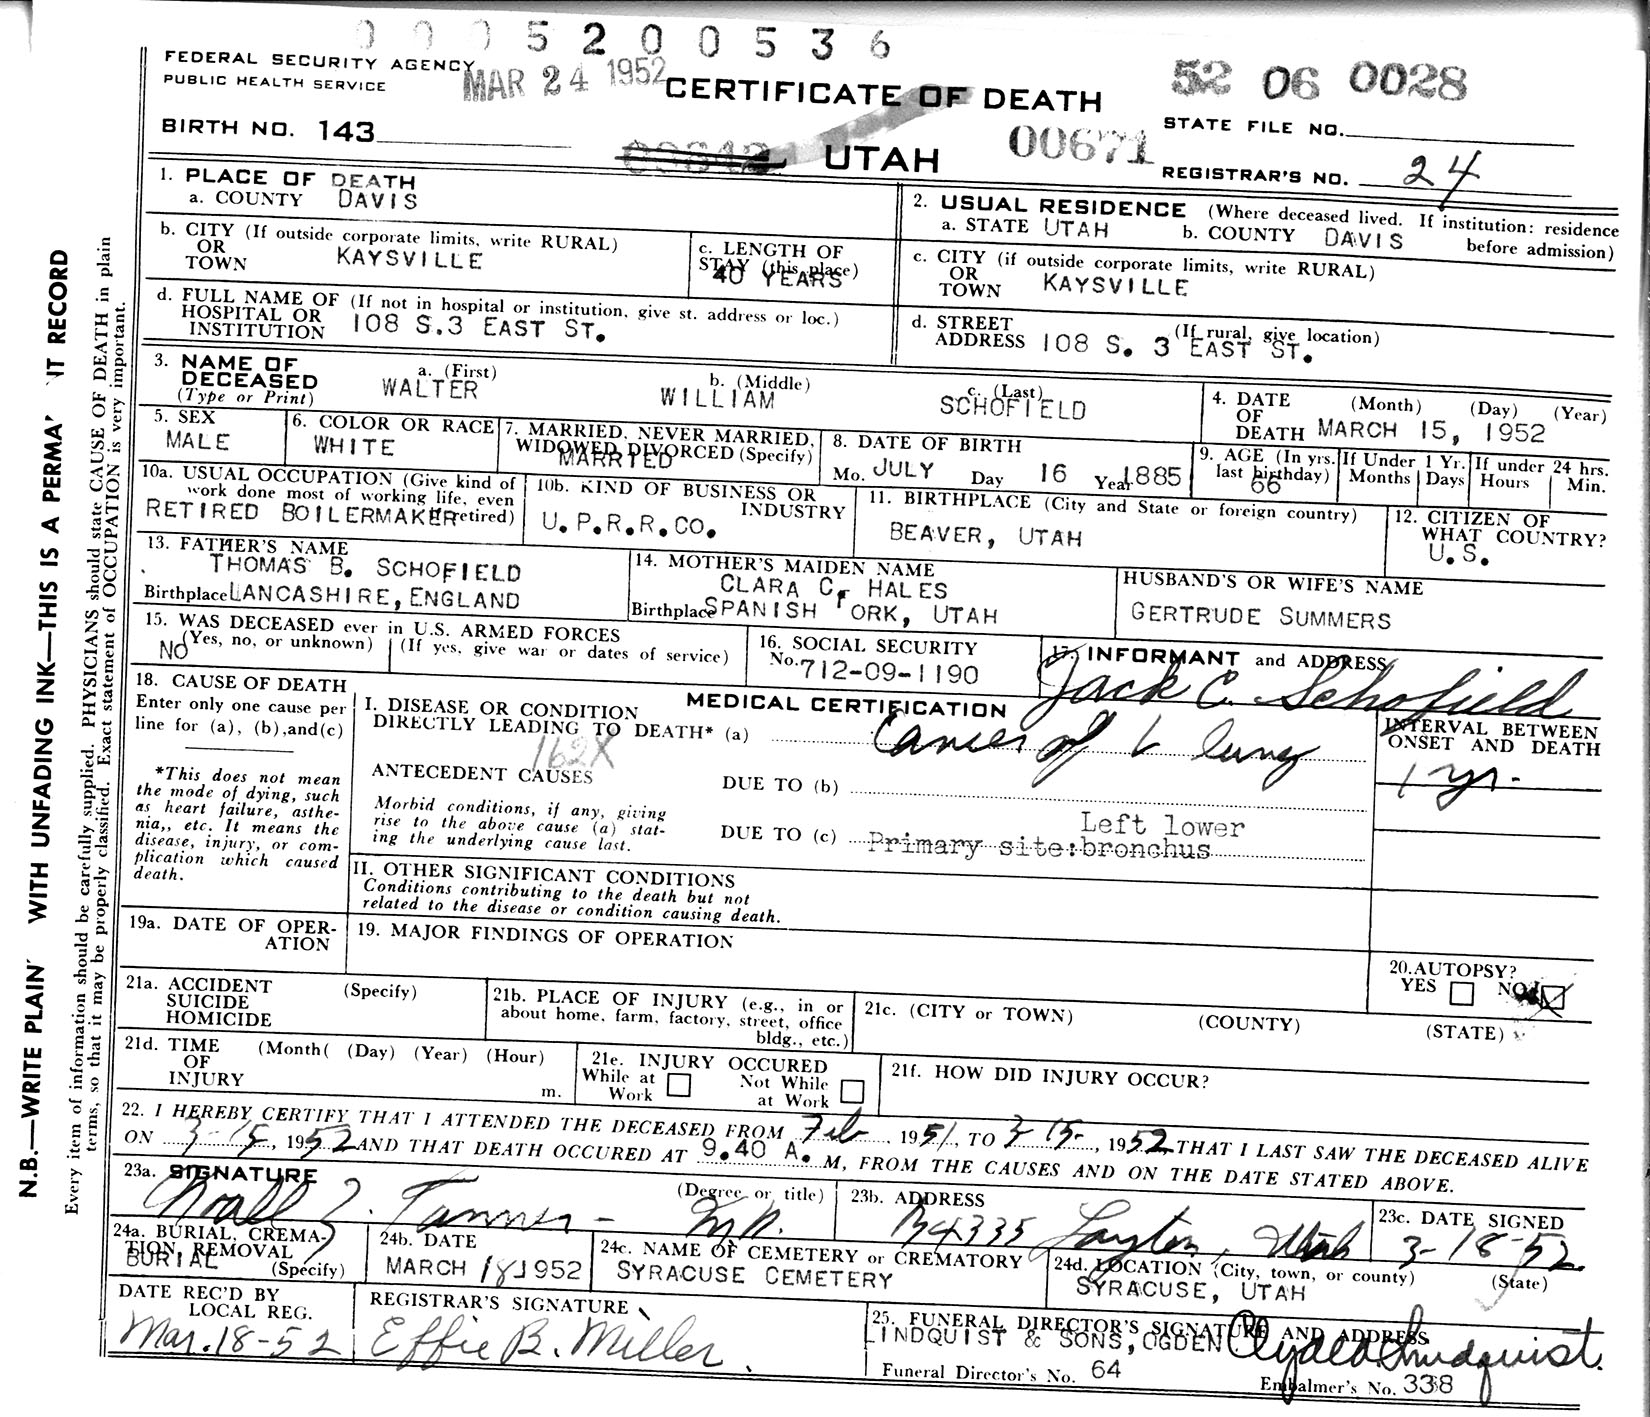 0 0 0 5 2 0 0 5 3 6
FEDERAL SECURITY AGENCY
PUBLIC HEALTH SERVICE
MAR 24 1952
CERTIFICATE OF DEATH
52 06 0028
STATE FILE NO.
BIRTH NO. 143
UTAH
00671
REGISTRAR'S NO. 24
1. PLACE OF DEATH
a. COUNTY DAVIS
2. USUAL RESIDENCE (Where deceased lived. If institution: residence before admission)
a. STATE UTAH b. COUNTY DAVIS
b. CITY (If outside corporate limits, write RURAL)
OR
TOWN KAYSVILLE
c. LENGTH OF
STAY (this place)
40 YEARS
c. CITY (if outside corporate limits, write RURAL)
OR
TOWN KAYSVILLE
d. FULL NAME OF (If not in hospital or institution, give st. address or loc.)
HOSPITAL OR
INSTITUTION 108 S.3 EAST ST.
d. STREET (If rural, give location)
ADDRESS 108 S. 3 EAST ST.
3. NAME OF
DECEASED
(Type or Print)
a. (First) b. (Middle) c. (Last)
WALTER WILLIAM SCHOFIELD
4. DATE (Month) (Day) (Year)
OF
DEATH MARCH 15, 1952
5. SEX
MALE
6. COLOR OR RACE
WHITE
7. MARRIED, NEVER MARRIED,
WIDOWED, DIVORCED (Specify)
MARRIED
8. DATE OF BIRTH
Mo. JULY Day 16 Year 1885
9. AGE (In yrs. last birthday)
66
If Under 1 Yr.
Months Days
If under 24 hrs.
Hours Min.
10a. USUAL OCCUPATION (Give kind of
work done most of working life, even
if retired)
RETIRED BOILERMAKER
10b. KIND OF BUSINESS OR
INDUSTRY
U.P.R.R.CO.
11. BIRTHPLACE (City and State or foreign country)
BEAVER, UTAH
12. CITIZEN OF
WHAT COUNTRY?
U.S.
13. FATHER'S NAME
THOMAS B. SCHOFIELD
Birthplace LANCASHIRE, ENGLAND
14. MOTHER'S MAIDEN NAME
CLARA C. HALES
Birthplace SPANISH FORK, UTAH
HUSBAND'S OR WIFE'S NAME
GERTRUDE SUMMERS
15. WAS DECEASED ever in U.S. ARMED FORCES
(Yes, no, or unknown) (If yes, give war or dates of service)
NO
16. SOCIAL SECURITY
No. 712-09-1190
17. INFORMANT and ADDRESS
Jack C. Schofield
18. CAUSE OF DEATH
Enter only one cause per
line for (a), (b), and (c)
MEDICAL CERTIFICATION
I. DISEASE OR CONDITION
DIRECTLY LEADING TO DEATH* (a) Cancer of L lung
162X
INTERVAL BETWEEN
ONSET AND DEATH
1 yr.
*This does not mean
the mode of dying, such
as heart failure, asthe-
nia,, etc. It means the
disease, injury, or com-
plication which caused
death.
ANTECEDENT CAUSES
Morbid conditions, if any, giving
rise to the above cause (a) stat-
ing the underlying cause last.
DUE TO (b)
DUE TO (c) Left lower
Primary site: bronchus
II. OTHER SIGNIFICANT CONDITIONS
Conditions contributing to the death but not
related to the disease or condition causing death.
19a. DATE OF OPER-
ATION
19. MAJOR FINDINGS OF OPERATION
20. AUTOPSY?
YES NO
21a. ACCIDENT (Specify)
SUICIDE
HOMICIDE
21b. PLACE OF INJURY (e.g., in or
about home, farm, factory, street, office
bldg., etc.)
21c. (CITY or TOWN) (COUNTY) (STATE)
21d. TIME (Month( (Day) (Year) (Hour)
OF
INJURY m.
21e. INJURY OCCURED
While at Work
Not While at Work
21f. HOW DID INJURY OCCUR?
22. I HEREBY CERTIFY THAT I ATTENDED THE DECEASED FROM Feb, 1951, TO 3-15-, 1952 THAT I LAST SAW THE DECEASED ALIVE
ON 3-15, 1952 AND THAT DEATH OCCURED AT 9.40 A. M, FROM THE CAUSES AND ON THE DATE STATED ABOVE.
23a. SIGNATURE (Degree or title)
Noall Z. Tanner - M.D.
23b. ADDRESS
Layton, Utah
23c. DATE SIGNED
3-18-52
24a. BURIAL, CREMA-
TION, REMOVAL
(Specify)
BURIAL
24b. DATE
MARCH 18 1952
24c. NAME OF CEMETERY or CREMATORY
SYRACUSE CEMETERY
24d. LOCATION (City, town, or county) (State)
SYRACUSE, UTAH
DATE REC'D BY
LOCAL REG.
Mar. 18-52
REGISTRAR'S SIGNATURE
Effie B. Miller
25. FUNERAL DIRECTOR'S SIGNATURE AND ADDRESS
LINDQUIST & SONS, OGDEN Clyde Lindquist.
Funeral Director's No. 64
Embalmer's No. 338
N.B.—WRITE PLAIN WITH UNFADING INK—THIS IS A PERMA NT RECORD
Every item of information should be carefully supplied. PHYSICIANS should state CAUSE OF DEATH in plain
terms, so that it may be properly classified. Exact statement of OCCUPATION is very important.